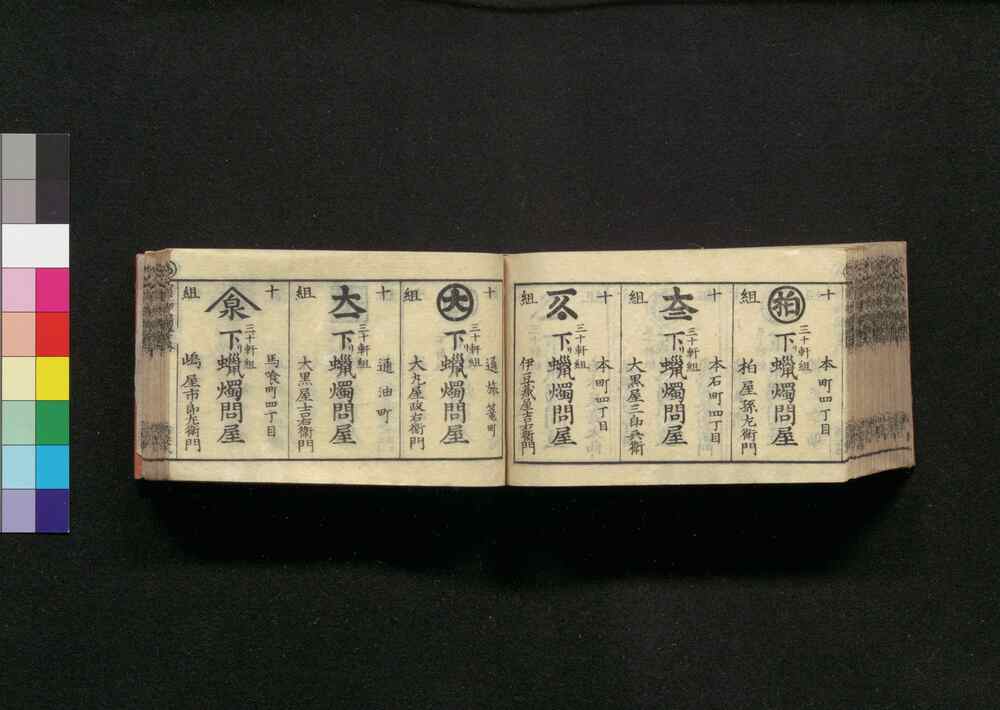 十組
本町四丁目
柏
三十軒組
下り蠟燭問屋
柏屋孫左衛門
十組
本石町四丁目
三十軒組
下り蠟燭問屋
大黒屋三郎兵衛
十組
本町四丁目
三十軒組
下り蠟燭問屋
伊豆蔵屋吉右衛門
十組
通旅篭町
大
三十軒組
下り蠟燭問屋
大丸屋政右衛門
十組
通油町
三十軒組
下り蠟燭問屋
大黒屋吉右衛門
十組
馬喰町四丁目
泉
三十軒組
下り蠟燭問屋
嶋屋市郎左衛門